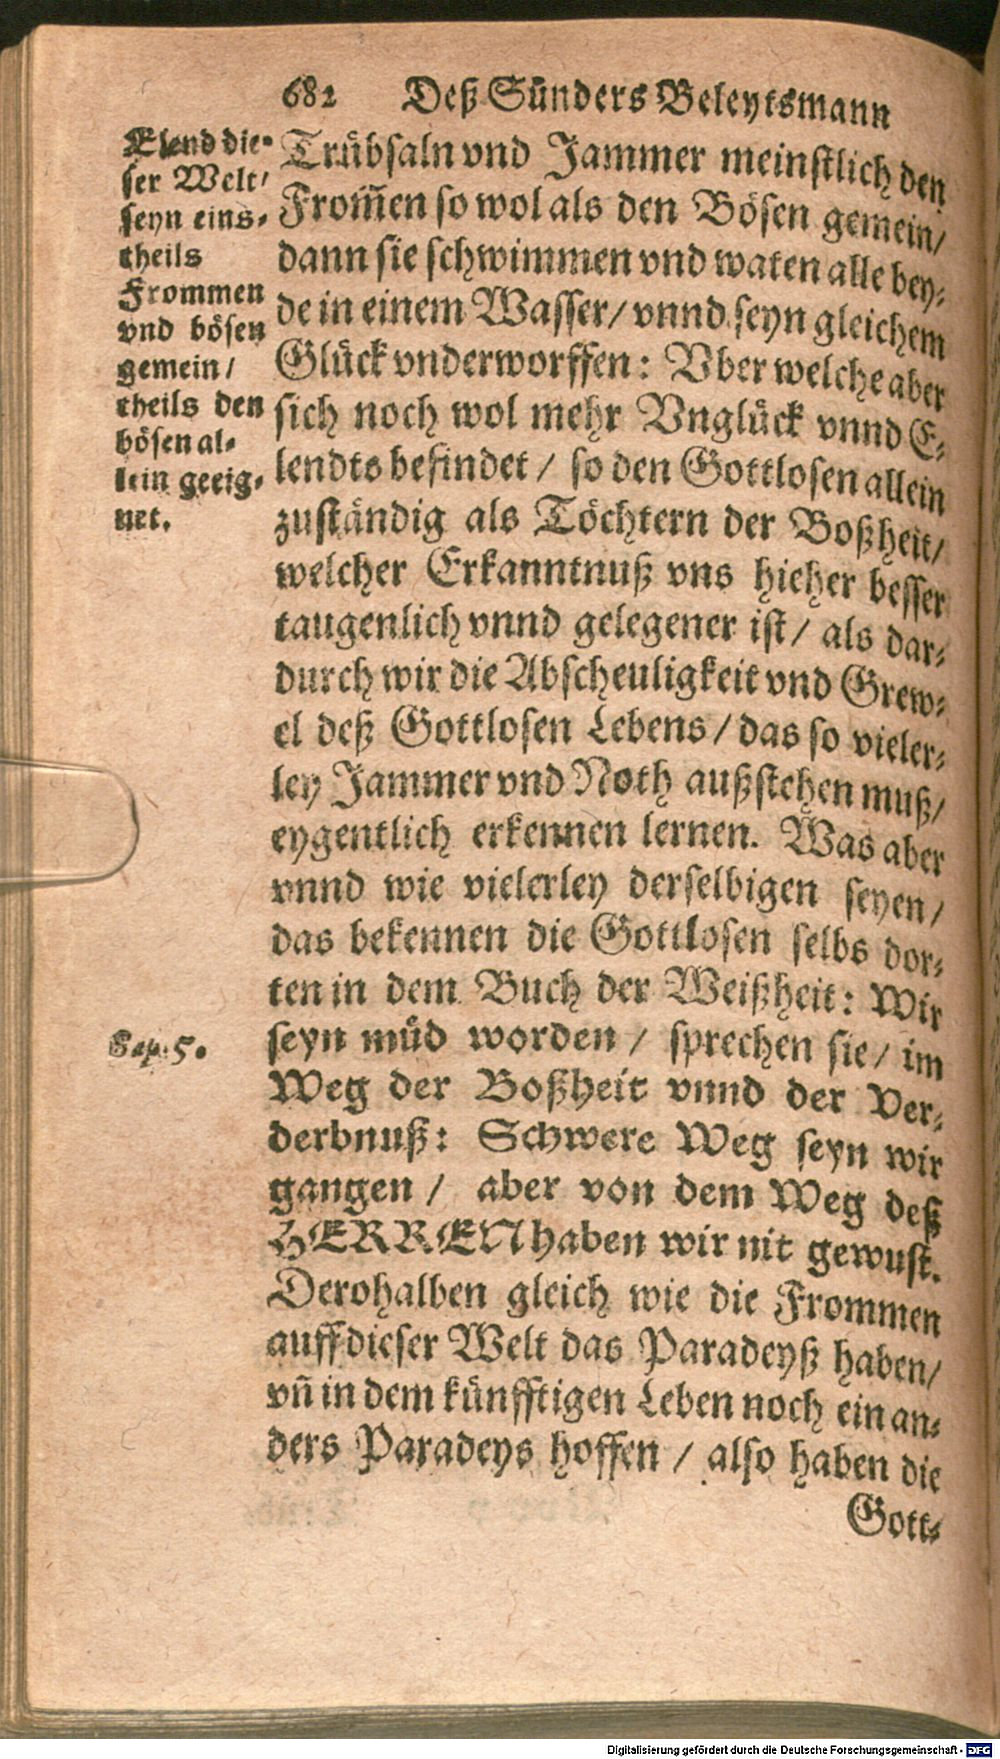 682 Deß Sünders Beleytsmann
Elend die-
ser Welt/
seyn eins-
theils
Frommen
vnd bösen
gemein/
theils den
bösen al-
lein geeig-
net.
Trübsaln vnd Jammer meinstlich den
From̃en so wol als den Bösen gemein/
dann sie schwimmen vnd waten alle bey-
de in einem Wasser/ vnnd seyn gleichem
Glück vnderworffen: Vber welche aber
sich noch wol mehr Vnglück vnnd E-
lendts befindet / so den Gottlosen allein
zuständig als Töchtern der Boßheit/
welcher Erkanntnuß vns hieher besser
taugenlich vnnd gelegener ist/ als dar-
durch wir die Abscheuligkeit vnd Grew-
el deß Gottlosen Lebens / das so vieler-
ley Jammer vnd Noth außstehen muß/
eygentlich erkennen lernen. Was aber
vnnd wie vielerley derselbigen seyen/
das bekennen die Gottlosen selbs dor-
ten in dem Buch der Weißheit: Wir
Sap. 5.
seyn müd worden / sprechen sie/ im
Weg der Boßheit vnnd der Ver-
derbnuß: Schwere Weg seyn wir
gangen / aber von dem Weg deß
HERREN haben wir nit gewust.
Derohalben gleich wie die Frommen
auff dieser Welt das Paradeyß haben/
vñ in dem künfftigen Leben noch ein an-
ders Paradeys hoffen / also haben die
Gott-
Digitalisierung gefördert durch die Deutsche Forschungsgemeinschaft - DFG